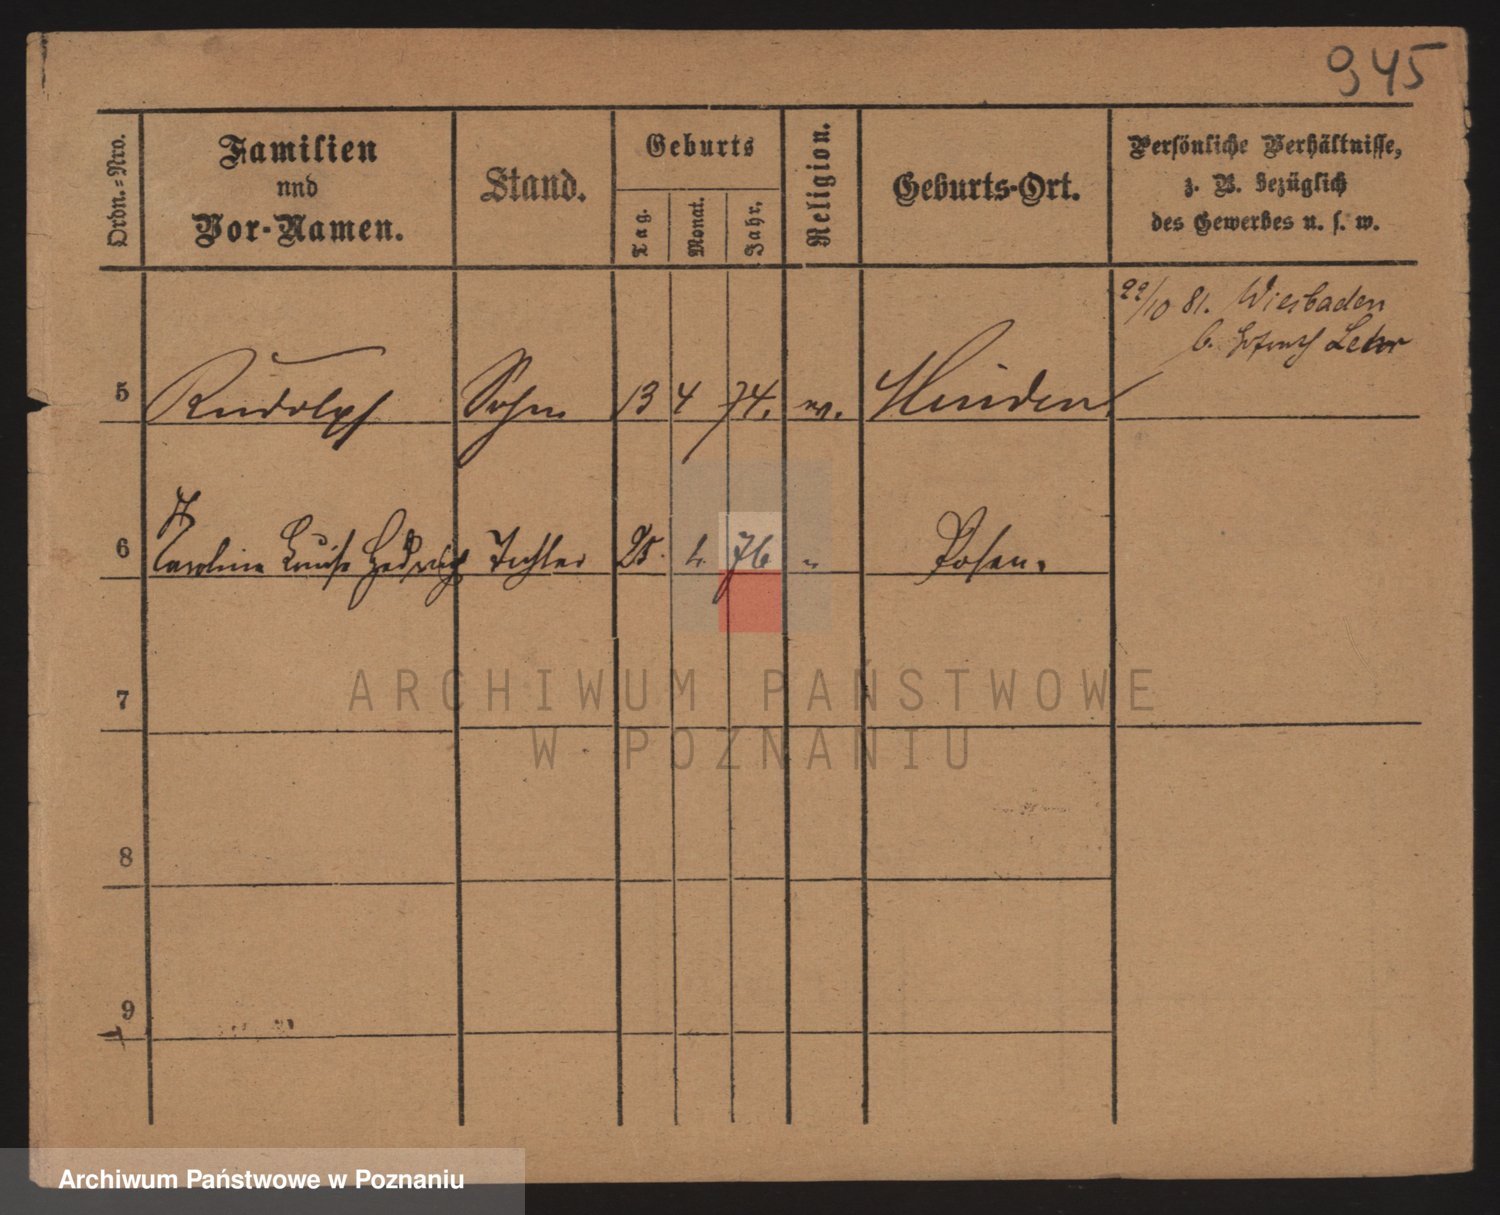 945
Ordn.=Nro.
Familien
nnd
Vor-Namen.
Stand.
Geburts
Tag.
Monat.
Jahr.
Religion.
Geburts-Ort.
Persönliche Verhältnisse,
z. B. bezüglich
des Gewerbes u. s. w.
22/10 81. Wiesbaden
b. Lehr
5 Rudolph Sohn 13 4 74. Minden
6 Caroline Luise Hedwig Tochter 25. 76 " Posen.
7
ARCHIWUM PAŃSTWOWE
W POZNANIU
8
9
Archiwum Państwowe w Poznaniu